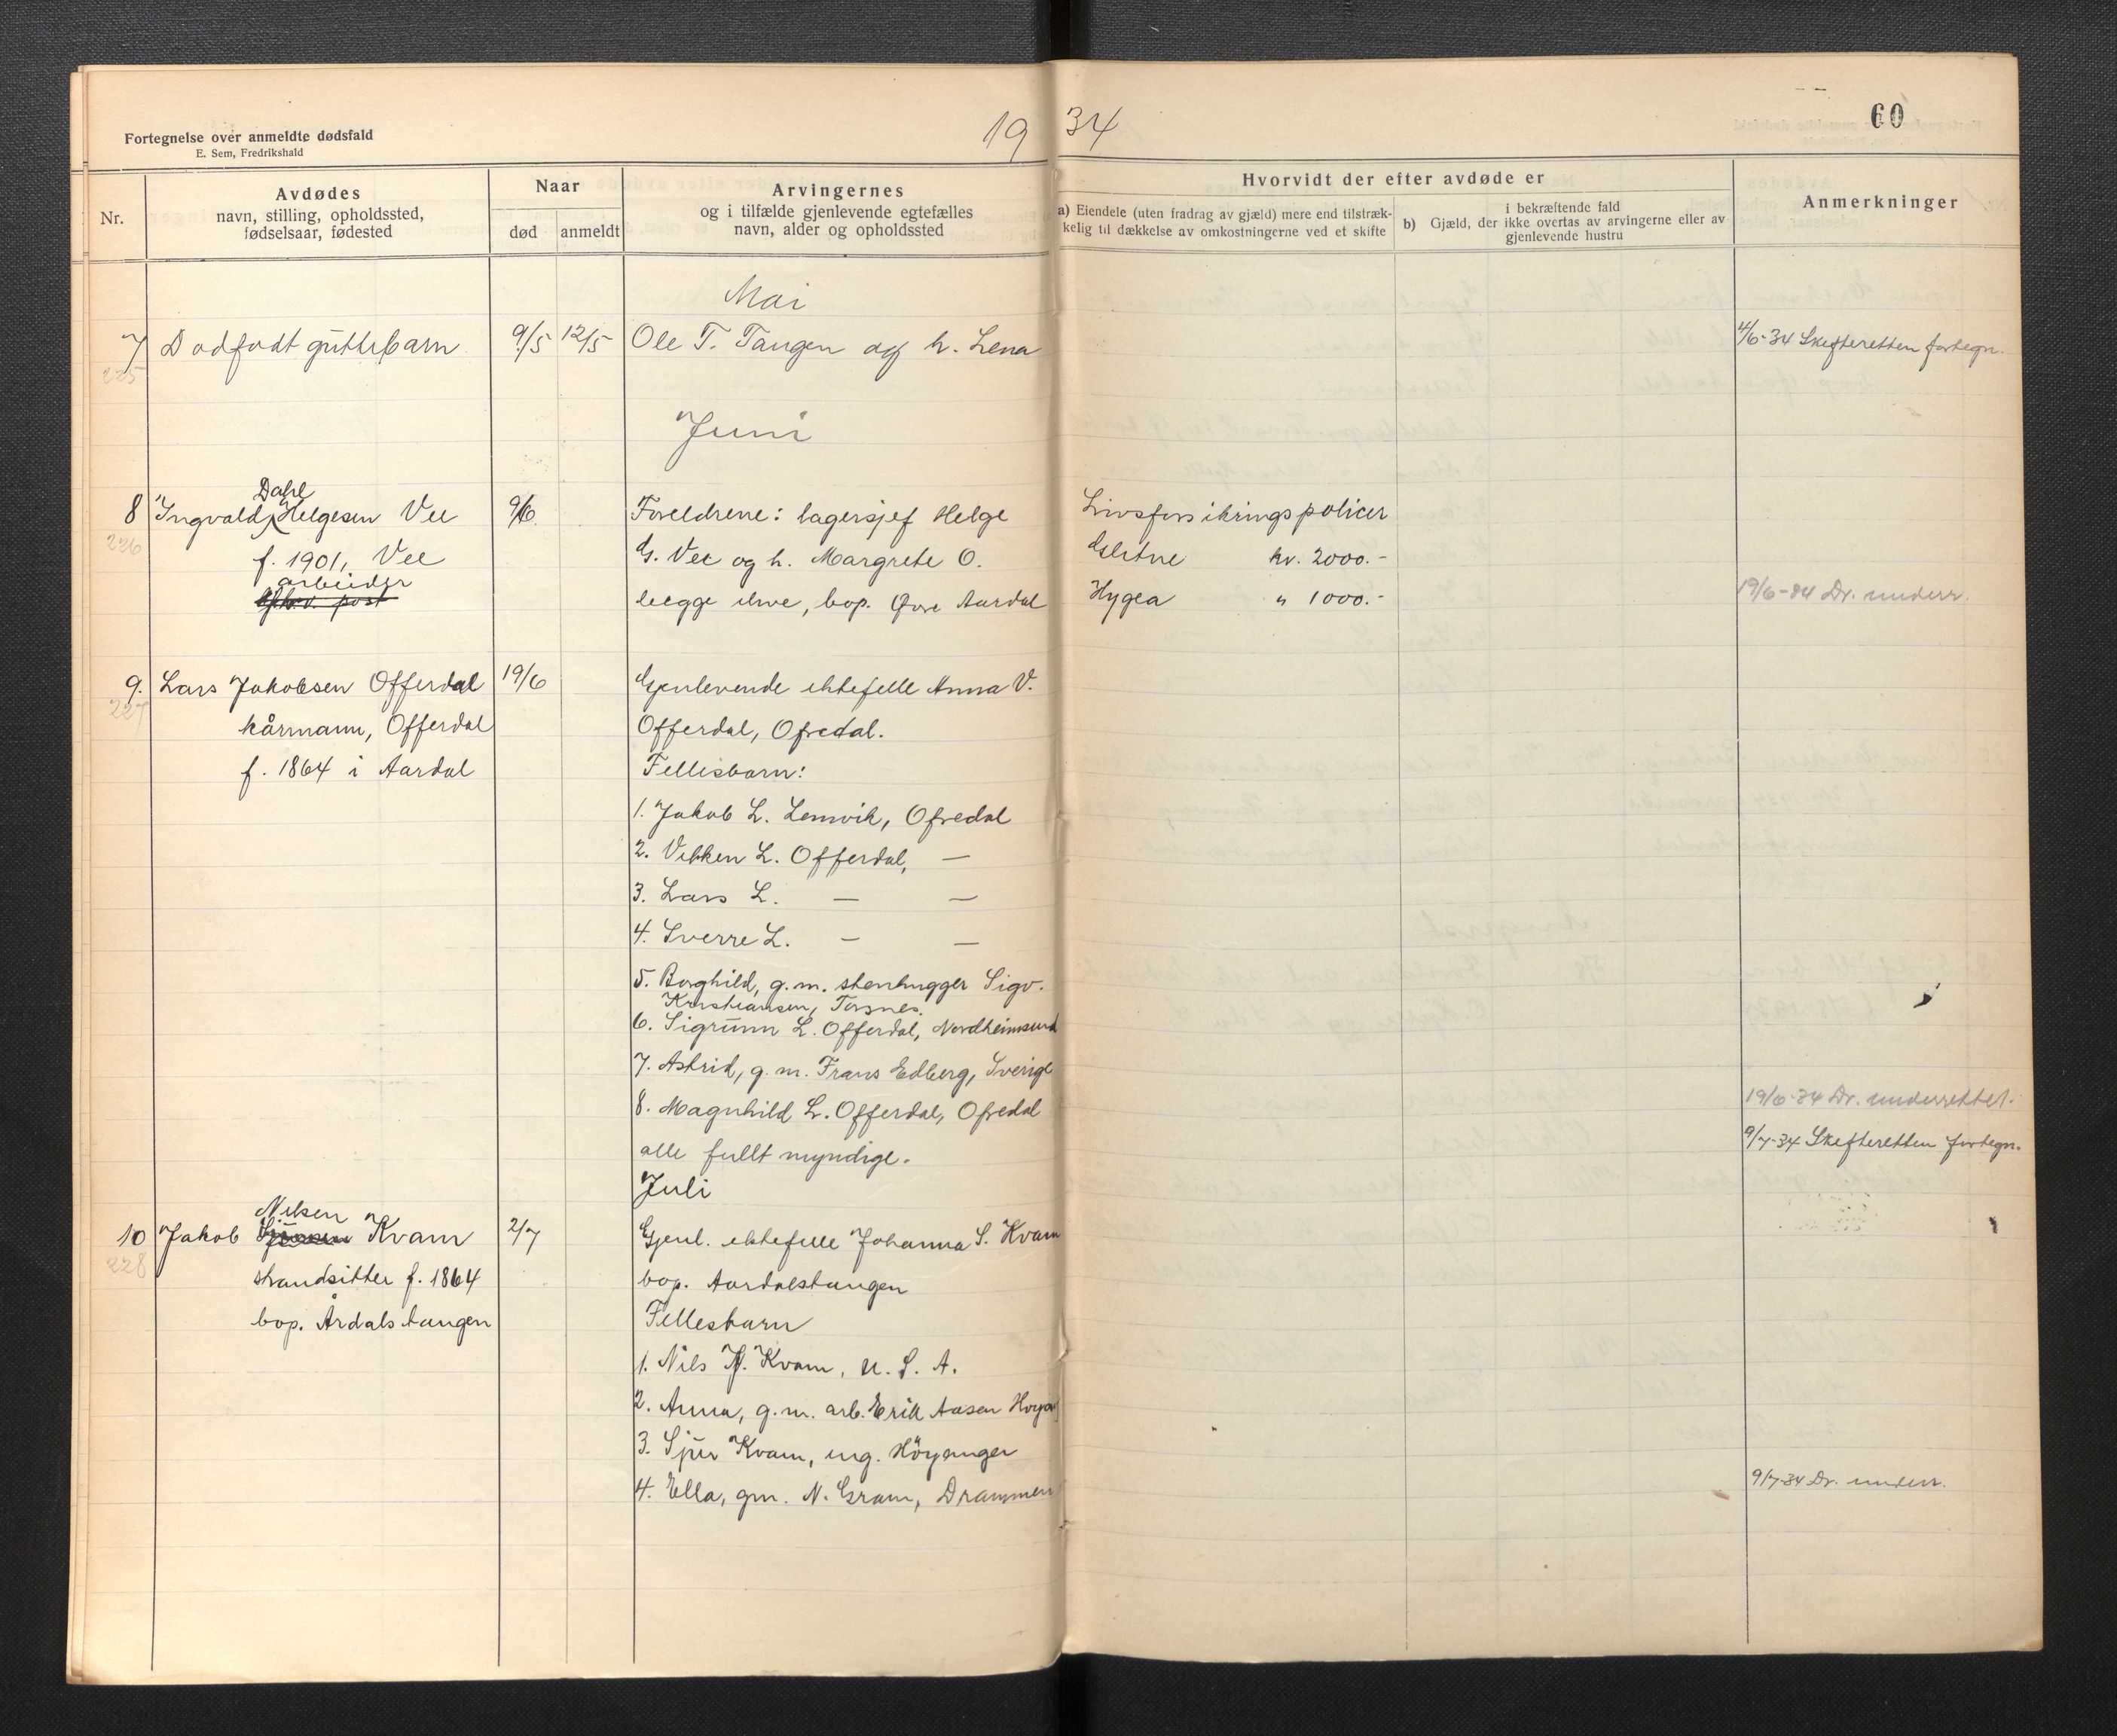 Fortegnelse over anmeldte dødsfald
E. Sem, Fredrikshald
19 34
60
Nr.
Avdødes
navn, stilling, opholdssted,
fødselsaar, fødested
Naar
død
anmeldt
Arvingernes
og i tilfælde gjenlevende egtefælles
navn, alder og opholdssted
Hvorvidt der efter avdøde er
a) Eiendele (uten fradrag av gjæld) mere end tilstræk-
kelig til dækkelse av omkostningerne ved et skifte
b) Gjæld, der i bekræftende fald
ikke overtas av arvingerne eller av
gjenlevende hustru
Anmerkninger
Mai
7 Dødfødt guttebarn 9/5 12/5 Ole T. Tangen og h. Lena
4/6-34 Skifteretten fortegn.
225
Juni
Dahl
8 Ingvald Helgesen Vee 9/6 Foreldrene: lagersjef Helge Livsforsikringspolicer
226
f. 1901, Vee G. Vee og h. Margrete O. kr. 2000.-
arbeider
post
begge i live, bop. Øvre Aardal Hygea " 1000.-
19/6-34 Dr. underr.
9. Lars Jakobsen Offerdal 19/6 Gjenlevende ektefelle Anna V.
227
kårmann, Offerdal Offerdal, Ofredal.
f. 1864 i Aardal Fellesbarn:
1. Jakob L. Lemvik, Ofredal
2. Vikken L. Offerdal, —
3. Lars L. — —
4. Sverre L. — —
5. Borghild, g.m. stenhugger Sigv.
Kristiansen, Torsnes.
6. Sigrunn L. Offerdal, Nordheimsund
7. Astrid, g.m. Frans Edberg, Sverige
8. Magnhild L. Offerdal, Ofredal
19/6-34 Dr. underrettet.
alle fullt myndige.
9/7-34 Skifteretten fortegn.
Juli
Nilsen
10 Jakob Kvam 2/7 Gjenl. ektefelle Johanna S. Kvam
228
strandsitter f. 1864 bop. Aardalstangen
bop. Årdalstangen Fellesbarn
1. Nils J. Kvam, U.S.A.
2. Anna, g.m. arb. Erik Aasen
3. Sjur Kvam, ing. Höyanger
4. Ella, gm. N. Gram, Drammen
9/7-34 Dr. underr.